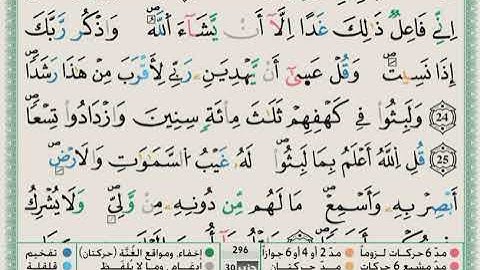 اِنِّي فَاعِلٌ ذَٰلِكَ غَدًا اِلَّآ اَنْ يَّشَآءَ اللّٰهُ وَاذْكُرْ رَّبَّكَ
اِذَا نَسِيتَ وَقُلْ عَسٰٓى اَنْ يَّهْدِيَنِ رَبِّي لِاَقْرَبَ مِنْ هٰذَا رَشَدًا
24 وَلَبِثُوا فِي كَهْفِهِمْ ثَلٰثَ مِائَةٍ سِنِينَ وَازْدَادُوا تِسْعًا
25 قُلِ اللّٰهُ اَعْلَمُ بِمَا لَبِثُوا لَهُ غَيْبُ السَّمٰوَاتِ وَالْاَرْضِ
اَبْصِرْ بِهِ وَاَسْمِعْ مَا لَهُمْ مِّنْ دُونِهِ مِنْ وَّلِيٍّ وَلَا يُشْرِكُ
مدّ 6 حركات لزوماً مدّ 2 أو 4 أو 6 جوازاً 296 إخفاء، ومواقع الغُنَّة (حركتان) تفخيم
مدّ حركتان 30 إدغام، وما لا يُلفَظ قلقلة